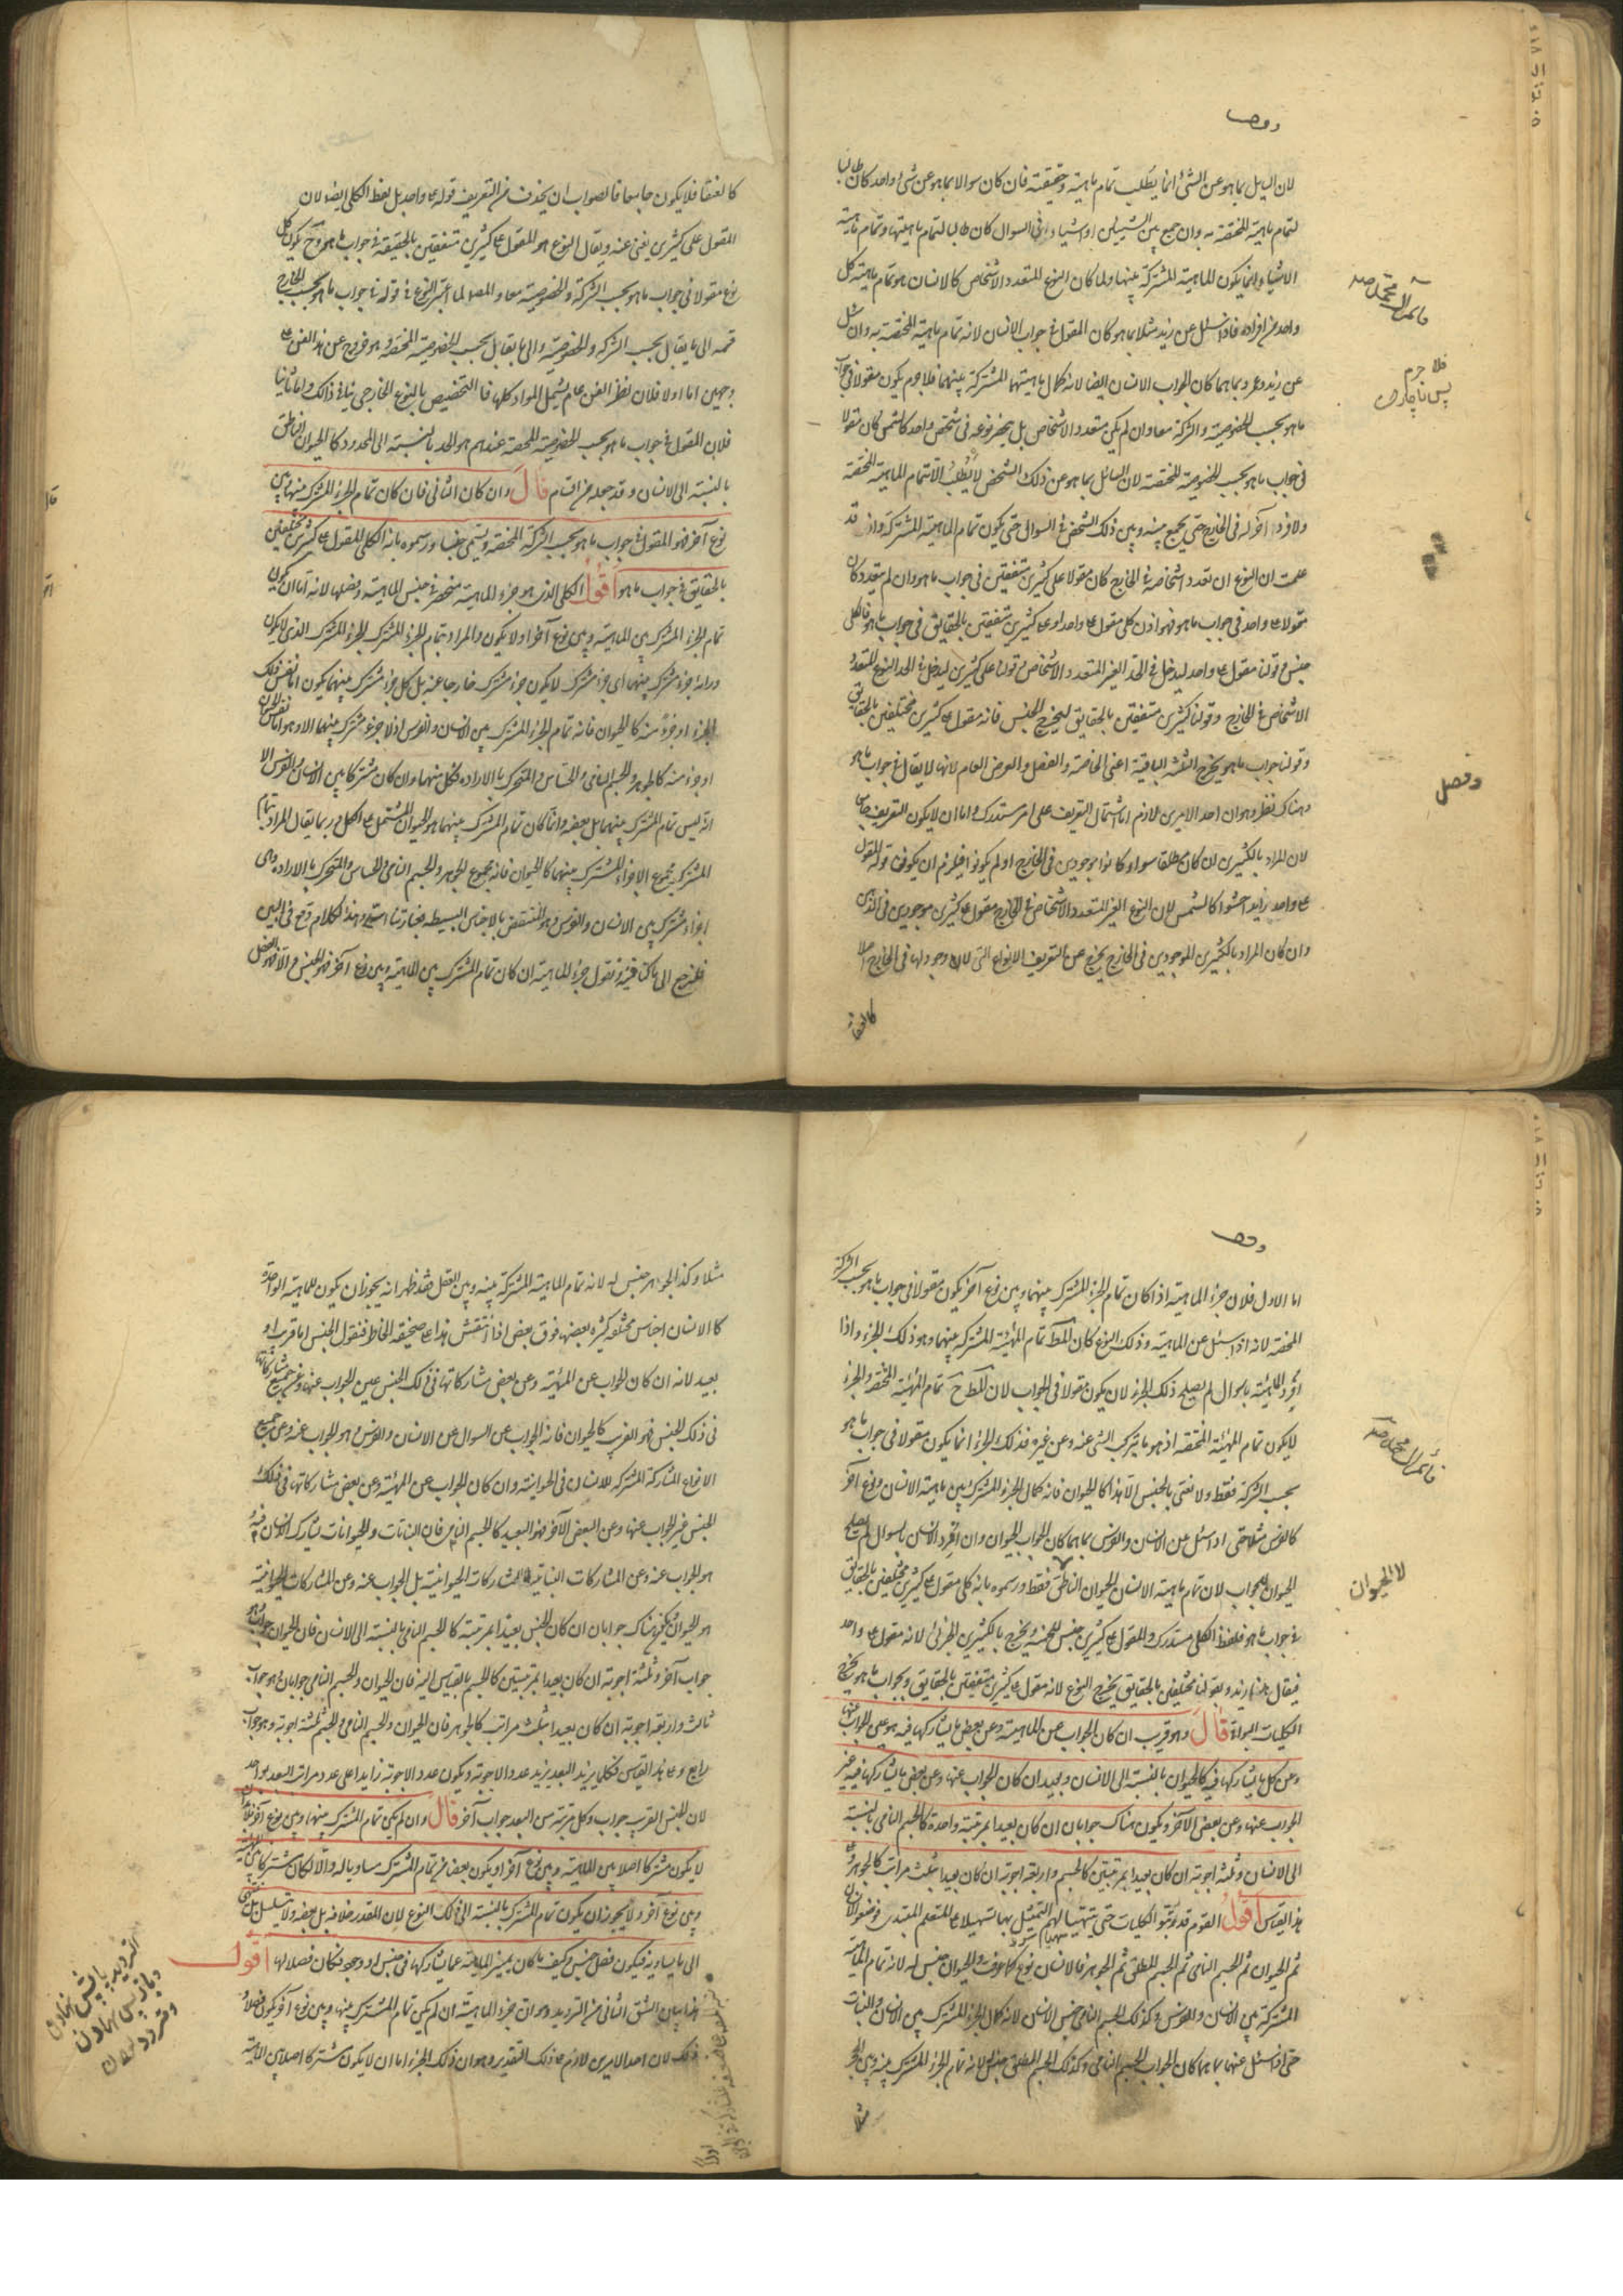 لان السایل بما هو عن الشئ انما یطلب تمام ماهیته و حقیقته فان کان سوالا بما هو عن شئ واحد کان طالبا
لتمام ماهیته المختصة به وان جمع بین الشیئین او اشیاء فی السوال کان طالبا لتمام ماهیتها و تمام ماهیة
الاشیاء انما یکون الماهیة المشترکة بینها ولما کان النوع المتعدد الاشخاص کالانسان هو تمام ماهیة کل
واحد من افراده فاذا سئل عن زید مثلا بما هو کان المقول فی جواب الانسان لانه تمام ماهیته المختصة به وان سئل
عن زید وعمرو بما هما کان الجواب الانسان ایضا لانه کمال ماهیتهما المشترکة بینهما فلا جرم یکون مقولا فی جواب
ما هو بحسب الخصوصیة والشرکة معا وان لم یکن متعدد الاشخاص بل ینحصر نوعه فی شخص واحد کالشمس کان مقولا
فی جواب ما هو بحسب الخصوصیة المختصة لان السائل بما هو عن ذلک الشخص لا یطلب الا تمام الماهیة المختصة
ولا فرد آخر له فی الخارج حتی یجمع بینه وبین ذلک الشخص فی السوال حتی یکون تمام الماهیة المشترکة واذ قد
علمت ان النوع ان تعدد اشخاصه فی الخارج کان مقولا علی کثیرین متفقین فی جواب ما هو وان لم یتعدد کان
مقولا علی واحد فی جواب ما هو فهو اذن کلی مقول علی واحد او علی کثیرین متفقین بالحقایق فی جواب ما هو فالکلی
جنس وقولنا مقول علی واحد لیدخل فی الحد الغیر المتعدد الاشخاص وقولنا علی کثیرین لیدخل فی الحد النوع المتعدد
الاشخاص فی الخارج وقولنا کثیرین متفقین بالحقایق لیخرج الجنس فانه مقول علی کثیرین مختلفین بالحقایق
وقولنا جواب ما هو یخرج الثلثة الباقیة اعنی الخاصة والفصل والعرض العام لانها لا یقال فی جواب ما هو
وهناک نظر وهو ان احد الامرین لازم اما اشتمال التعریف علی امر مستدرک واما ان لا یکون التعریف جامعا
لان المراد بالکثیرین ان کان مطلقا سواء کانوا موجودین فی الخارج او لم یکونوا فیلزم ان یکون قوله المقول
علی واحد زایدا حشوا کالشمس لان النوع الغیر المتعدد الاشخاص فی الخارج مقول علی کثیرین موجودین فی الذهن
وان کان المراد بالکثیرین الموجودین فی الخارج یخرج عن التعریف الانواع التی لا وجود لها فی الخارج اصلا
کالعنقا
فلا جرم
پس ناچار
وفصل
کالعنقا فلا یکون جامعا فالصواب ان یحذف من التعریف قوله علی واحد بل لفظ الکلی ایضا لان
المقول علی کثیرین یغنی عنه ویقال النوع هو المقول علی کثیرین متفقین بالحقیقة فی جواب ما هو وح یکون کل
نوع مقولا فی جواب ما هو بحسب الشرکة والخصوصیة معا والمص لما اعتبر النوع فی قوله فی جواب ما هو بحسب الخارج
قسمه الی ما یقال بحسب الشرکة والخصوصیة والی ما یقال بحسب الخصوصیة المختصة وهو خروج عن هذا الفن من
وجهین اما اولا فلان نظر الفن عام یشمل المواد کلها فالتخصیص بالنوع الخارجی ینافی ذلک واما ثانیا
فلان المقول فی جواب ما هو بحسب الخصوصیة المحضة عندهم هو الحد بالنسبة الی المحدود کالحیوان الناطق
بالنسبة الی الانسان وقد جعله من اقسام قال وان کان الثانی فان کان تمام الجزء المشترک بینها وبین
نوع آخر فهو المقول فی جواب ما هو بحسب الشرکة المختصة ویسمی جنسا ورسموه بانه الکلی المقول علی کثیرین مختلفین
بالحقایق فی جواب ما هو اقول الکلی الذی هو جزء الماهیة منحصر فی جنس الماهیة وفصلها لانه اما ان یکون
تمام الجزء المشترک بین الماهیة وبین نوع آخر او لا یکون والمراد بتمام الجزء المشترک الجزء المشترک الذی لا یکون
وراءه جزء مشترک بینهما ای جزء مشترک لا یکون جزء مشترک خارجا عنه بل کل جزء مشترک بینهما یکون اما نفس ذلک
الجزء او جزءً منه کالحیوان فانه تمام الجزء المشترک بین الانسان والفرس اذ لا جزء مشترک بینهما الا وهو اما نفس الحیوان
او جزء منه کالجوهر والجسم النامی والحساس والمتحرک بالارادة فکل منها وان کان مشترکا بین الانسان والفرس الا
انه لیس تمام المشترک بینهما بل بعضه وانما کان تمام المشترک بینهما هو الحیوان المشتمل علی الکل وربما یقال المراد بتمام
المشترک مجموع الاجزاء المشترک بینهما کالحیوان فانه مجموع الجوهر والجسم النامی والحساس والمتحرک بالارادة وهی
اجزاء مشترک بین الانسان والفرس وهو منتقض بالاجناس البسیطة فعبارتنا اسد وهذا الکلام وقع فی البین
فلنرجع الی ما کنا فیه ونقول جزء الماهیة ان کان تمام المشترک بین الماهیة وبین نوع آخر فهو الجنس والا فهو الفصل
اما الاول فلان جزء الماهیة اذا کان تمام الجزء المشترک بینها وبین نوع آخر یکون مقولا فی جواب ما هو بحسب الشرکة
المختصة لانه اذا سئل عن الماهیة وذلک النوع کان المط تمام المهیة المشترکة بینهما وهو ذلک الجزء واذا
افرد الماهیة بالسوال لم یصلح ذلک الجزء لان یکون مقولا فی الجواب لان المط ح تمام المهیة المختصة والجزء
لا یکون تمام المهیة المختصة اذ هو ما یترکب الشئ عنه وعن غیره فذلک الجزء انما یکون مقولا فی جواب ما هو
بحسب الشرکة فقط ولا نعنی بالجنس الا هذا کالحیوان فانه کمال الجزء المشترک بین ماهیة الانسان ونوع آخر
کالفرس مثلا حتی اذا سئل عن الانسان والفرس بما هما کان الجواب الحیوان وان افرد الانسان بالسوال لم یصلح
الحیوان للجواب لان تمام ماهیة الانسان الحیوان الناطق فقط ورسموه بانه کلی مقول علی کثیرین مختلفین بالحقایق
فی جواب ما هو فلفظ الکلی مستدرک والمقول علی کثیرین جنس للخمسة ویخرج بالکثیرین الجزئی لانه مقول علی واحد
فیقال هذا زید وبقولنا مختلفین بالحقایق یخرج النوع لانه مقول علی کثیرین متفقین بالحقایق وبجواب ما هو یخرج
الکلیات البواقی قال وهو قریب ان کان الجواب عن الماهیة وعن بعض ما یشارکها فیه هو عین الجواب عنها
وعن کل ما یشارکها فیه کالحیوان بالنسبة الی الانسان وبعید ان کان الجواب عنها وعن بعض ما یشارکها فیه غیر
الجواب عنها وعن بعض الآخر ویکون هناک جوابان ان کان بعیدا بمرتبة واحدة کالجسم النامی بالنسبة
الی الانسان وثلثة اجوبة ان کان بعیدا بمرتبتین کالجسم واربعة اجوبة ان کان بعیدا بثلث مراتب کالجوهر وعلی
هذا القیاس اقول القوم قد رتبوا الکلیات حتی یتهیا لهم التمثیل بها تسهیلا علی المتعلم المبتدی فوضعوا الانسان
ثم الحیوان ثم الجسم النامی ثم الجسم المطلق ثم الجوهر فالانسان نوع کما عرفت والحیوان جنس له لانه تمام الماهیة
المشترکة بین الانسان والفرس وکذلک الجسم النامی جنس الانسان لانه کمال الجزء المشترک بین الانسان والنبات
حتی اذا سئل عنهما بما هما کان الجواب الجسم النامی وکذلک الجسم المطلق جنس له لانه تمام الجزء المشترک بینه وبین الحجر
لا الحیوان
مثلا وکذا الجوهر جنس له لانه تمام الماهیة المشترکة بینه وبین العقل فقد ظهر انه یجوز ان یکون للماهیة الواحدة
کالانسان اجناس مختلفة کثیرة بعضها فوق بعض اذا انتقش هذا علی صحیفة الخاطر فنقول الجنس اما قریب او
بعید لانه ان کان الجواب عن المهیة وعن بعض مشارکاتها فی ذلک الجنس عین الجواب عنها وعن جمیع مشارکاتها
فی ذلک الجنس فهو القریب کالحیوان فانه الجواب عن السوال عن الانسان والفرس وهو الجواب عنه وعن جمیع
الانواع المشارکة المشترکة للانسان فی الحیوانیة وان کان الجواب عن المهیة وعن بعض مشارکاتها فی ذلک
الجنس غیر الجواب عنها وعن البعض الآخر فهو البعید کالجسم النامی فان النباتات والحیوانات تشارک الانسان فیه
هو الجواب عنه وعن المشارکات النباتیة لا المشارکات الحیوانیة بل الجواب عنه وعن المشارکات الحیوانیة
هو الحیوان ویکون هناک جوابان ان کان الجنس بعیدا بمرتبة کالجسم النامی بالنسبة الی الانسان فان الحیوان جواب وهو
جواب آخر وثلثة اجوبة ان کان بعیدا بمرتبتین کالجسم بالقیاس الیه فان الحیوان والجسم النامی جوابان وهو جواب
ثالث واربعة اجوبة ان کان بعیدا بثلث مراتب کالجوهر فان الحیوان والجسم النامی والجسم ثلثة اجوبة وهو جواب
رابع وعلی هذا القیاس فکلما یزید البعد یزید عدد الاجوبة ویکون عدد الاجوبة زایدا علی عدد مراتب البعد بواحد
لان الجنس القریب جواب وکل مرتبة من البعد جواب آخر قال وان لم یکن تمام المشترک بینها وبین نوع آخر فلابد اما ان
لا یکون مشترکا اصلا بین الماهیة وبین نوع آخر او یکون بعضا من تمام المشترک مساویا له والا لکان مشترکا بین الماهیة
وبین نوع آخر ولا یجوز ان یکون تمام المشترک بالنسبة الی ذلک النوع لان المقدر خلافه بل بعضه ولا یتسلسل بل ینتهی
الی ما یساویه فیکون فصل جنس وکیف ما کان یمیز الماهیة عما یشارکها فی جنس او وجود فکان فصلا لها اقول
هذا بیان الشق الثانی من التردید وهو ان جزء الماهیة ان لم یکن تمام المشترک بینها وبین نوع آخر یکون فصلا و
ذلک لان احد الامرین لازم علی ذلک التقدیر وهو ان ذلک الجزء اما ان لا یکون مشترکا اصلا بین الماهیة